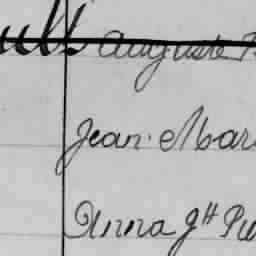 ult Auguste
Jean. Mar
Anna gH Pe